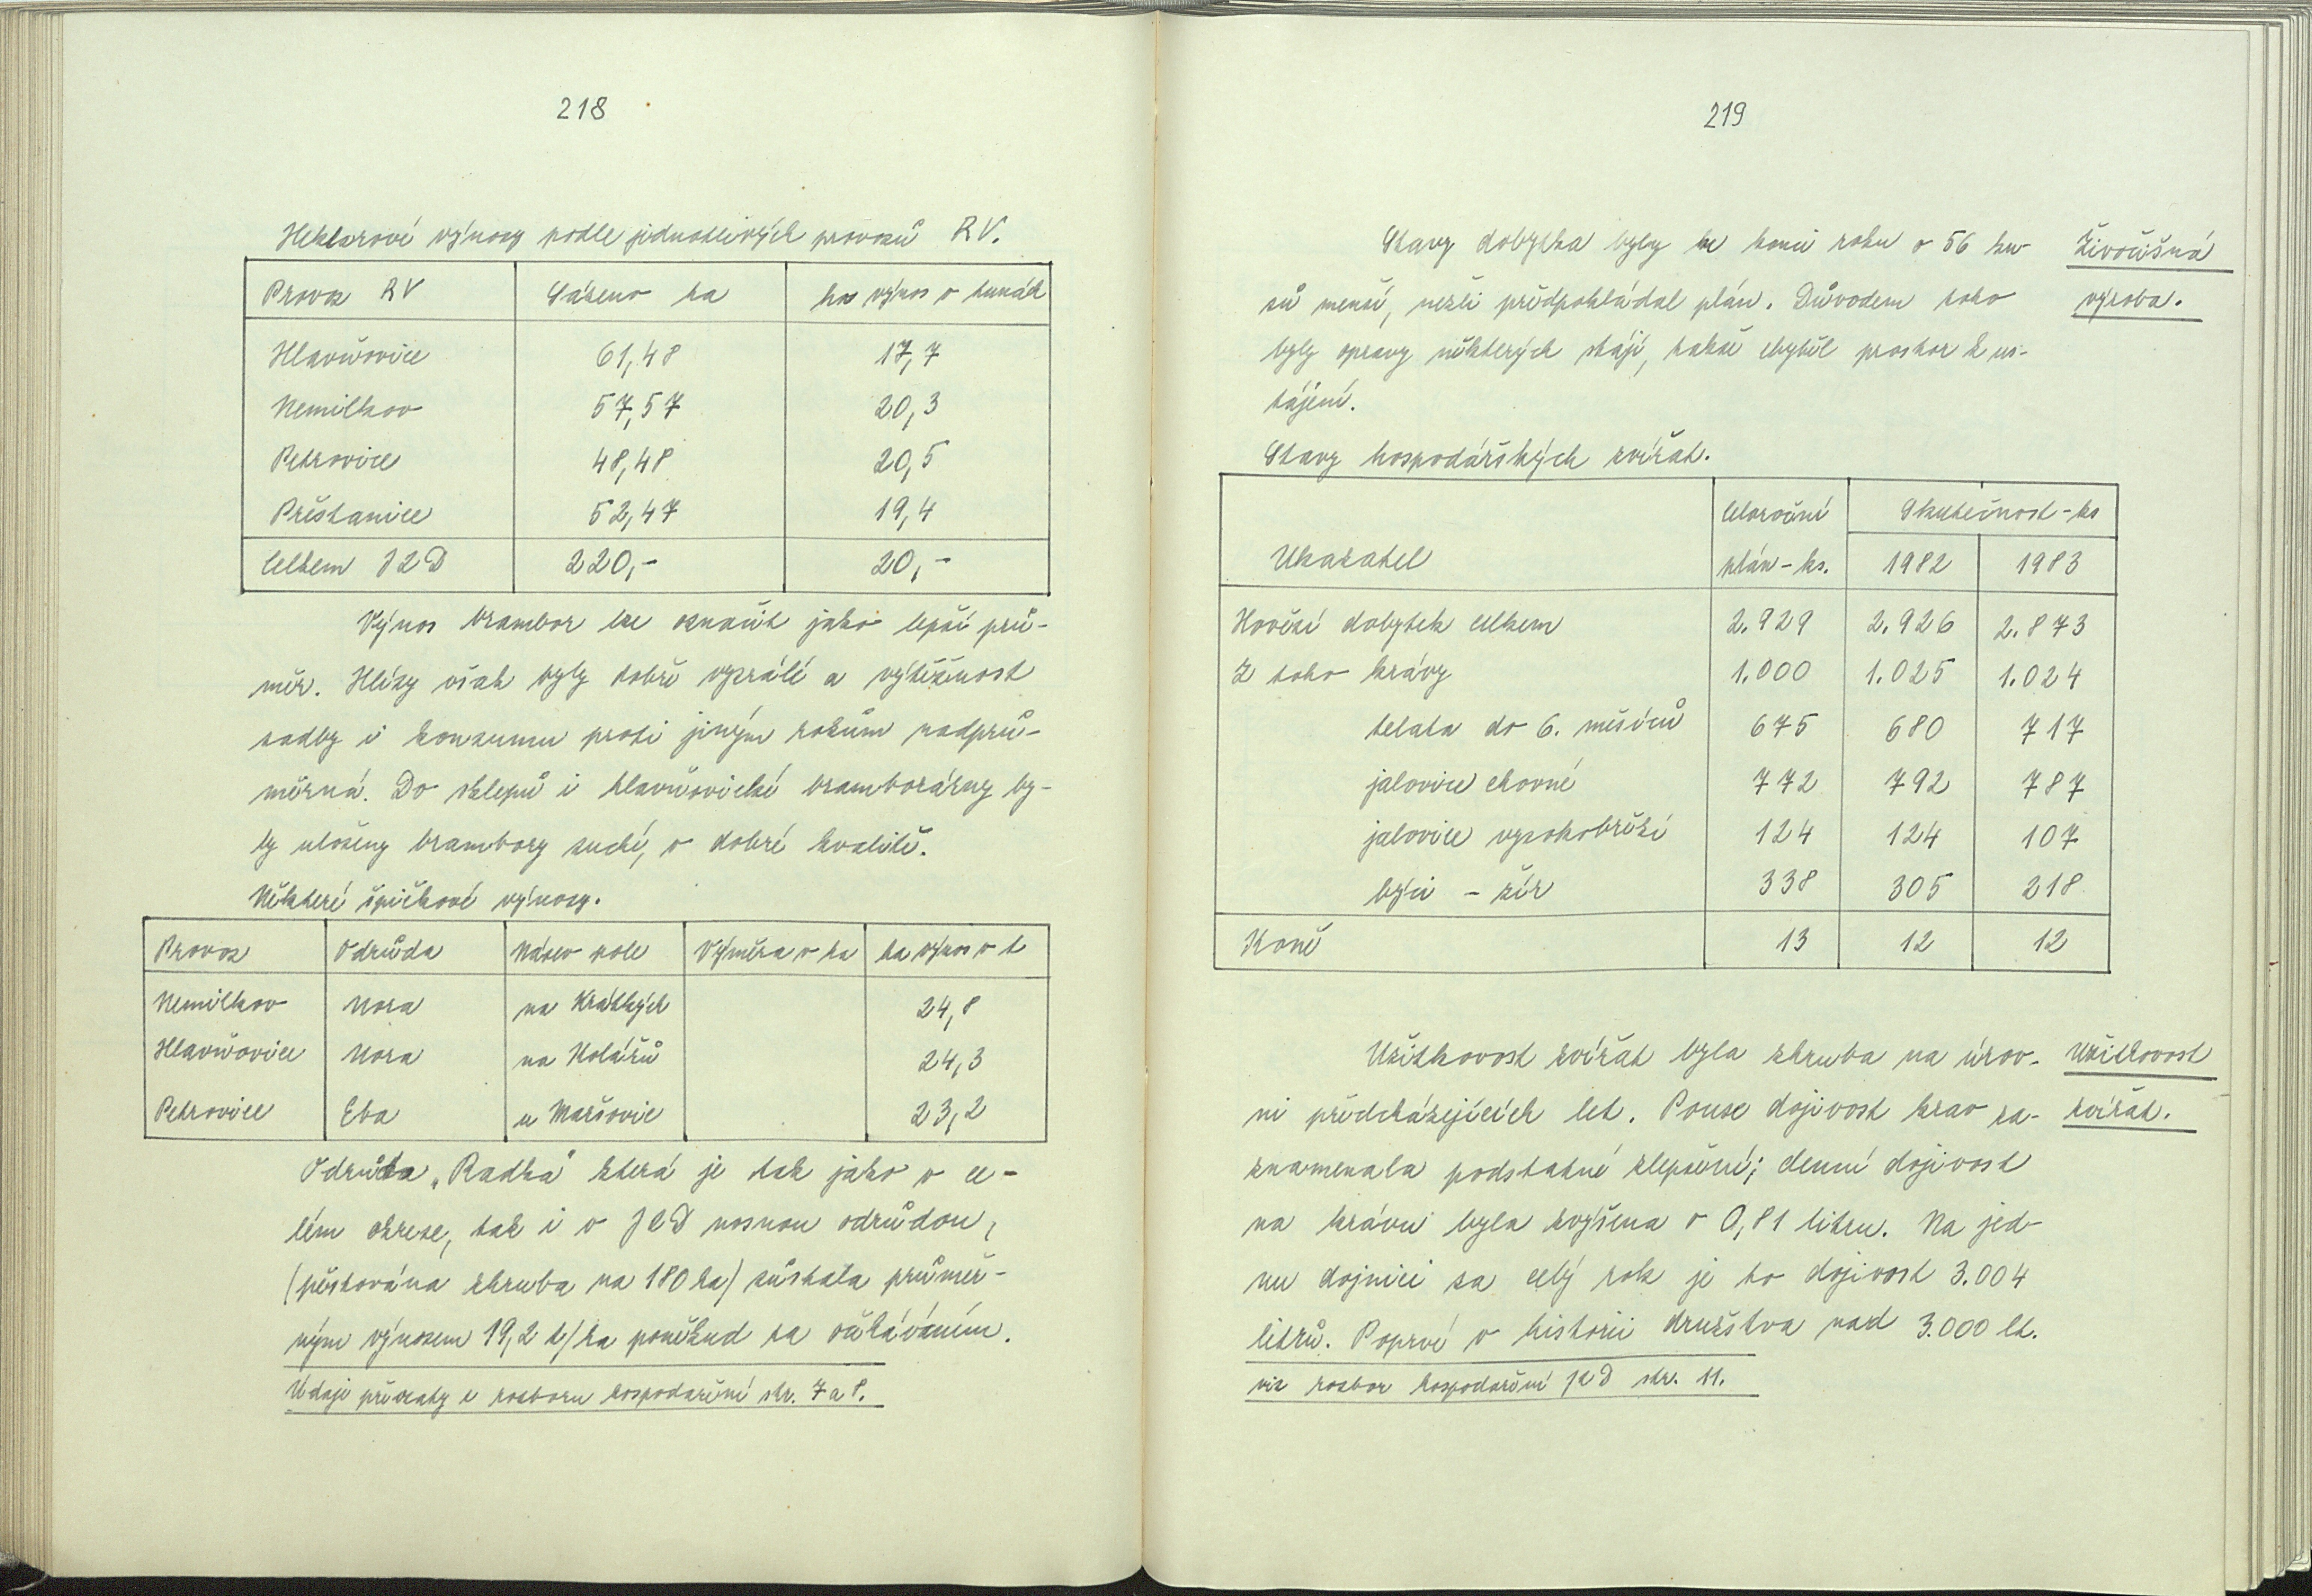 218
Hektarové výnosy podle jednotlivých provozů RV.
Provoz RV Sázeno ha ha výnos v tunách
Hlavňovice 61,48 17,7
Nemilkov 57,57 20,3
Petrovice 48,48 20,5
Přestanice 52,47 19,4
Celkem JZD 220,- 20,-
Výnos brambor lze označit jako lepší prů-
měr. Hlízy však byly dobře vyzrálé a výtěžnost
sadby i konzumu proti jiným rokům nadprů-
měrná. Do sklepů i hlavňovické bramborárny by-
ly uloženy brambory suché, v dobré kvalitě.
Některé špičkové výnosy.
Provoz Odrůda Název pole Výměra v ha ha výnos v t
Nemilkov Nora na Krátkých 24,8
Hlavňovice Nora na Kolářů 24,3
Petrovice Eba u Maršovic 23,2
Odrůda „Radka" která je tak jako v ce-
lém okrese, tak i v JZD nosnou odrůdou,
(pěstována zhruba na 180 ha) zůstala průměr-
ným výnosem 19,2 t/ha poněkud za očekáváním.
Údaje převzaty z rozboru hospodaření str. 7 a 8.
219
Stavy dobytka byly ke konci roku o 56 ku-
sů menší, nežli předpokládal plán. Důvodem toho
byly opravy některých stájí, takže chyběl prostor k us-
tájení.
Živočišná
výroba.
Stavy hospodářských zvířat.
Ukazatel Celoroční plán - ks. Skutečnost - ks
1982 1983
Hovězí dobytek celkem 2.929 2.926 2.873
Z toho krávy 1.000 1.025 1.024
telata do 6. měsíců 675 680 717
jalovice chovné 772 792 787
jalovice vysokobřezí 124 124 107
býci - žír 338 305 218
Koně 13 12 12
Užitkovost zvířat byla zhruba na úrov-
ni předcházejících let. Pouze dojivost krav za-
znamenala podstatné zlepšení; denní dojivost
na krávu byla zvýšena o 0,81 litru. Na jed-
nu dojnici za celý rok je to dojivost 3.004
litrů. Poprvé v historii družstva nad 3.000 lt.
Užitkovost
zvířat.
viz rozbor hospodaření JZD str. 11.